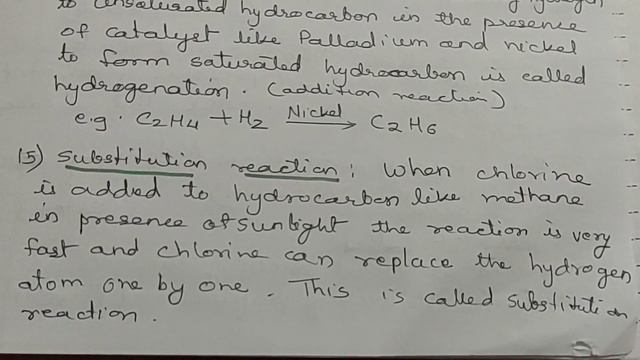 to unsaturated hydrocarbon in the presence
of catalyst like Palladium and nickel
to form saturated hydrocarbon is called
hydrogenation. (addition reaction)
e.g. C2H4 + H2 Nickel → C2H6
15) Substitution reaction: When chlorine
is added to hydrocarbon like methane
in presence of sunlight the reaction is very
fast and chlorine can replace the hydrogen
atom one by one. This is called substitution
reaction.